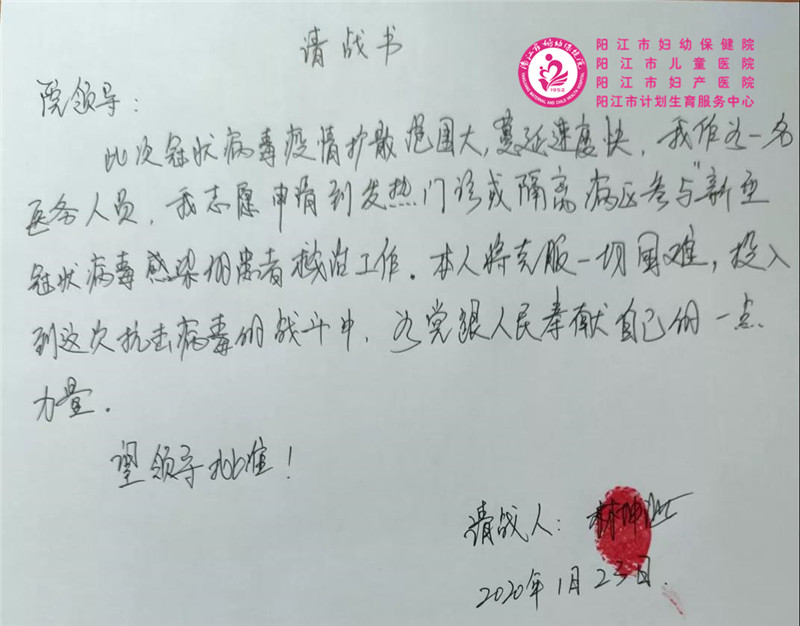 请战书
阳江市妇幼保健院
阳江市儿童医院
阳江市妇产医院
阳江市计划生育服务中心
阳江市妇幼保健院
YANGJIANG MATERNAL AND CHILD HEALTH HOSPITAL
1952
院领导:
此次冠状病毒疫情扩散范围大,蔓延速度快,我作为一名
医务人员,我志愿申请到发热门诊或隔离病区参与"新型
冠状病毒感染的患者救治工作。本人将克服一切困难,投入
到这次抗击病毒的战斗中,为党跟人民奉献自己的一点
力量。
望领导批准!
请战人:林坤
2020年1月23日.